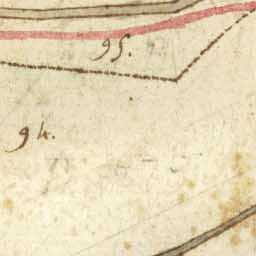 95.
94.